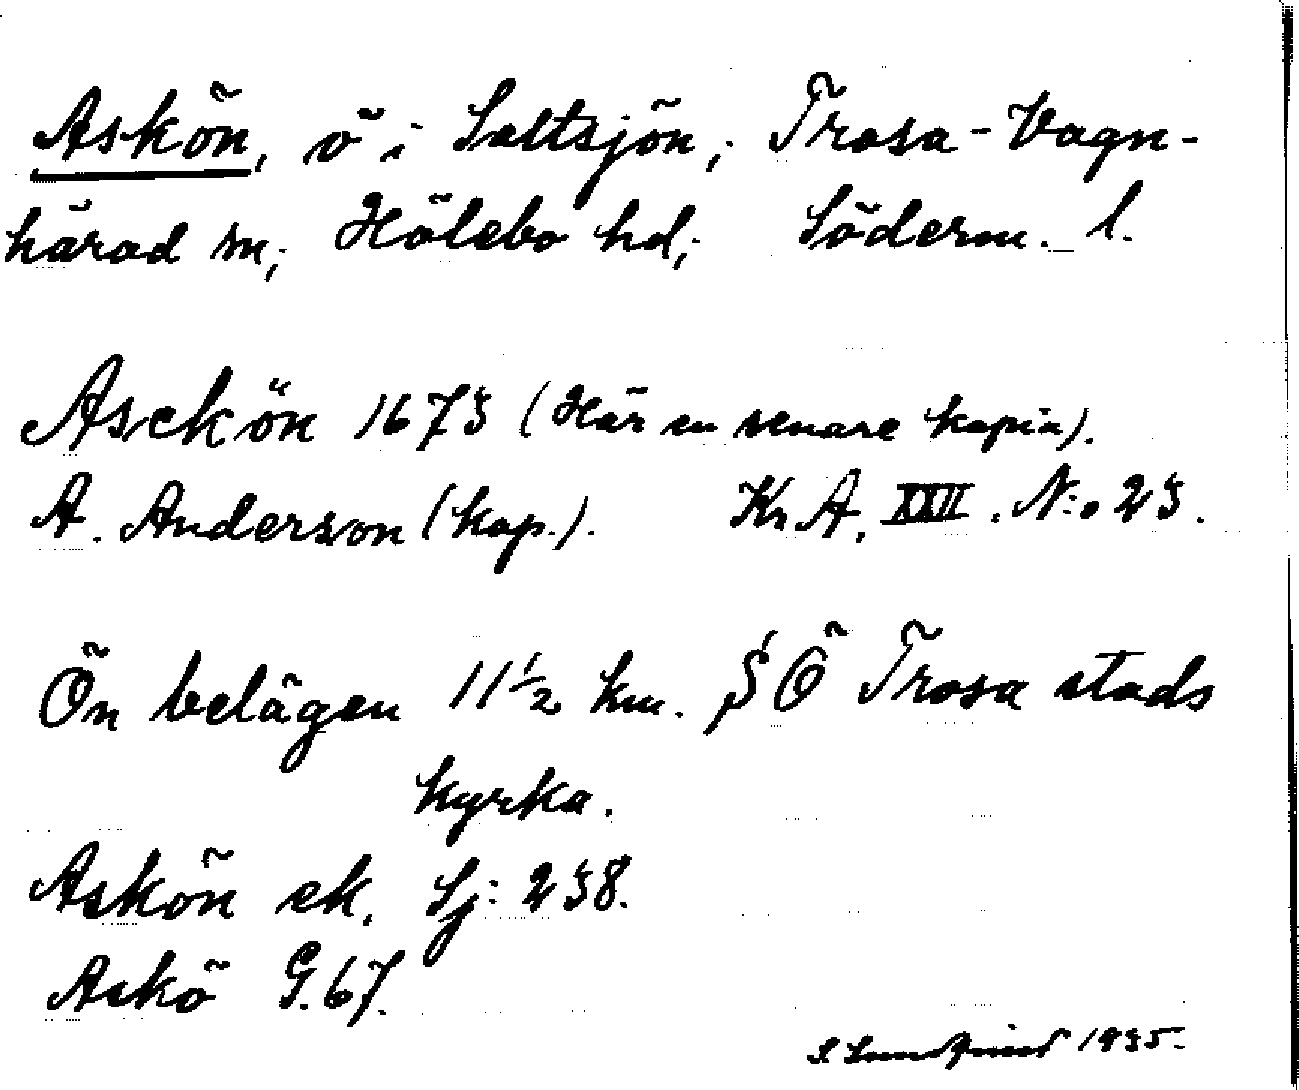 Askön, ö i Saltsjön, Trosa-Vagn-
härad sn, Hölebo hd, Söderm. l.
Asckön 1675 (Här en senare kopia).
A. Anderson (kop.). Kr.A. XXII. N:o 25.
Ön belägen 11 1/2 km. SÖ Trosa stads
kyrka.
Askön ek. Sj: 258.
Askö G.67.
1935.